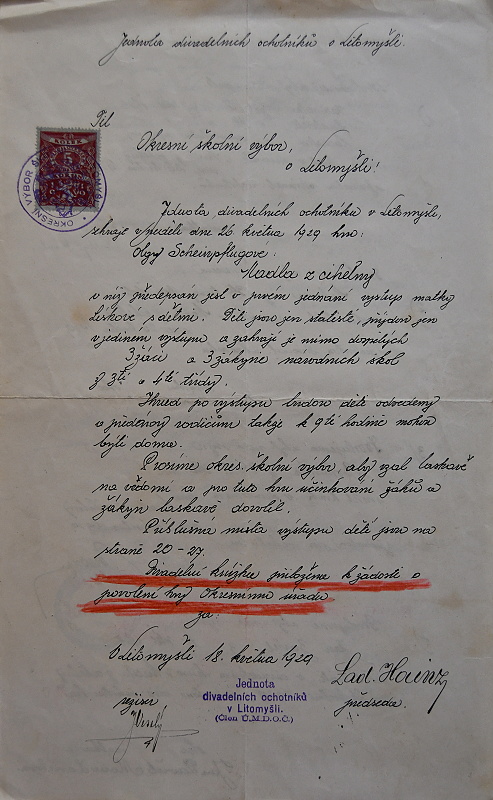 Jednota divadelních ochotníků v Litomyšli.
Tit
Okresní školní výbor,
v Litomyšli!
KOLEK
5
OKRESNÍ VÝBOR
Jednota divadelních ochotníků v Litomyšli,
sehraje v neděli dne 26. května 1929 hru:
Olgy Scheinpflugove:
Madla z cihelny
v níž předepsán jest v prvém jednání výstup matky
Liškové s dětmi. Děti jsou jen statisté, přijdou jen
v jediném výstupu a zahrají je mimo dospělých
3 žáci a 3 žákyně národních škol
z 3tí a 4té třídy.
Ihned po výstupu budou děti odvedeny
a předány rodičům takže k 9té hodině mohou
býti doma.
Prosíme okres. školní výbor, aby vzal laskavě
na vědomí a pro tuto hru účinkování žáků a
žákyň laskavě dovolil.
Příslušná místa výstupu dětí jsou na
straně 20-27.
Divadelní knížka přiložena k žádosti o
povolení hry Okresnímu úřadu
za:
V Litomyšli 18. května 1929
Lad. Hainz
předseda.
režisér
Jednota
divadelních ochotníků
v Litomyšli.
(Člen Ú.M.D.O.Č.)